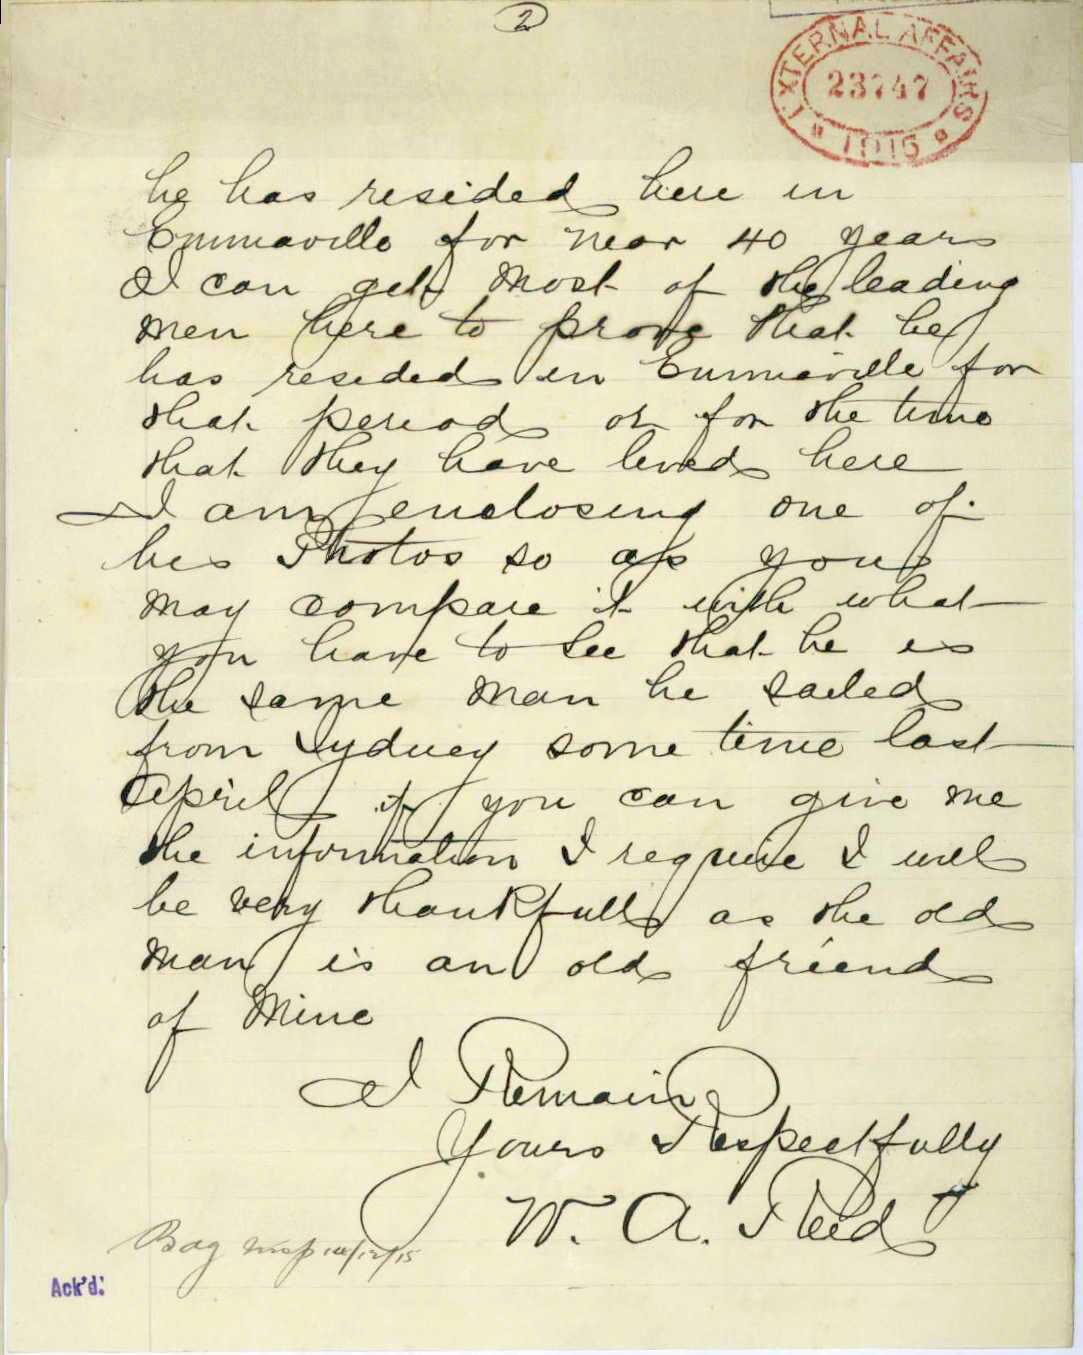 2
EXTERNAL AFFAIRS
23747
he has resided here in
Emmaville for near 40 years
I can get most of the leading
men here to prove that he
has resided in Emmaville for
that period or for the time
that they have lived here
I am enclosing one of
his Photos so as you
may compare it with what
you have to see that he is
the same man he sailed
from Sydney some time last
April if you can give me
the information I require I will
be very thankfull as the old
man is an old friend
of Mine
I Remain
Yours Respectfully
W. A. Reed
Bag 14/12/15
Ack'd: